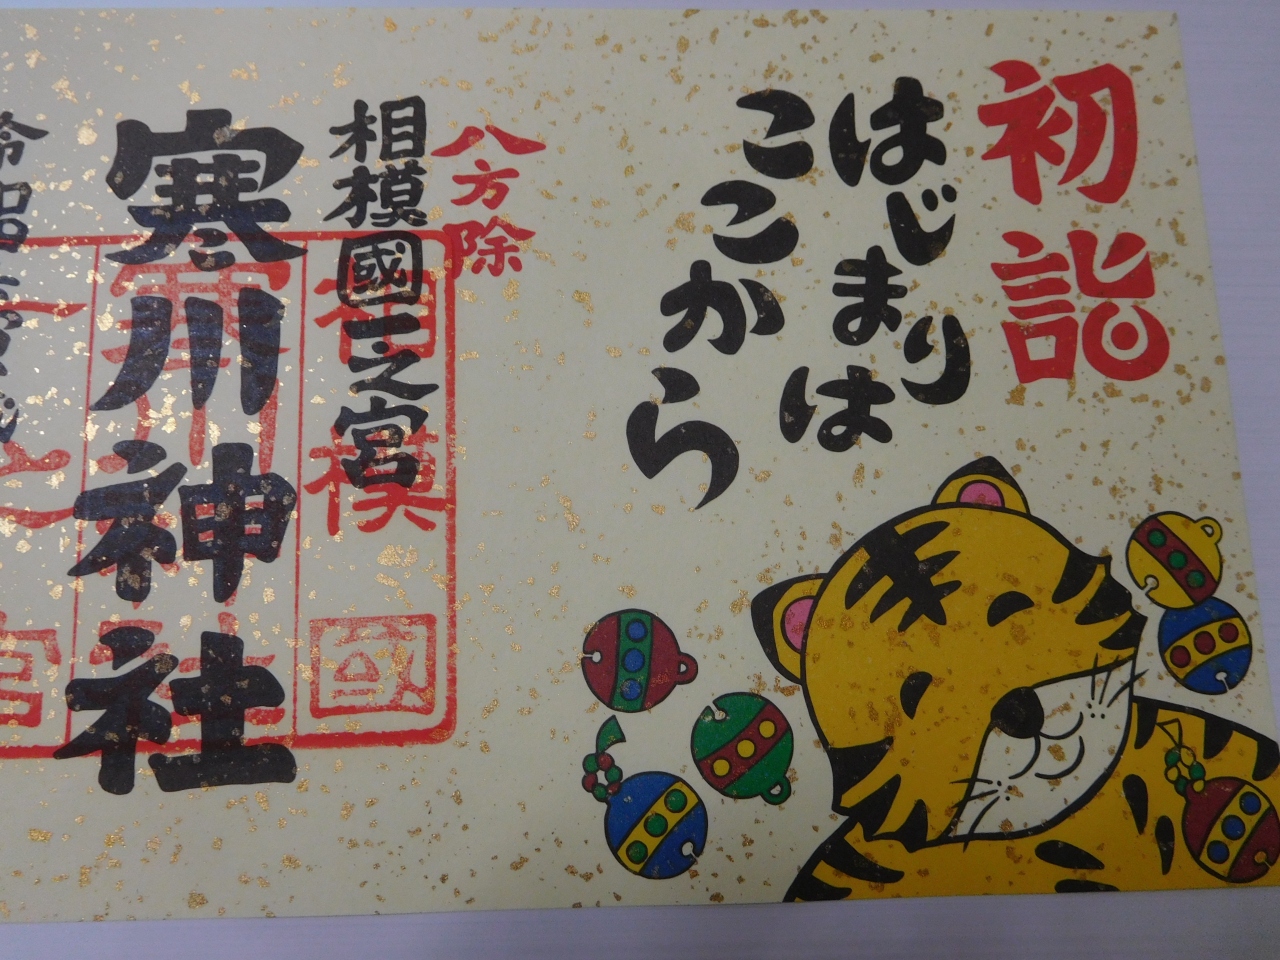 初詣
はじまりは
ここから
八方除
相模國一之宮
寒川神社
相模國